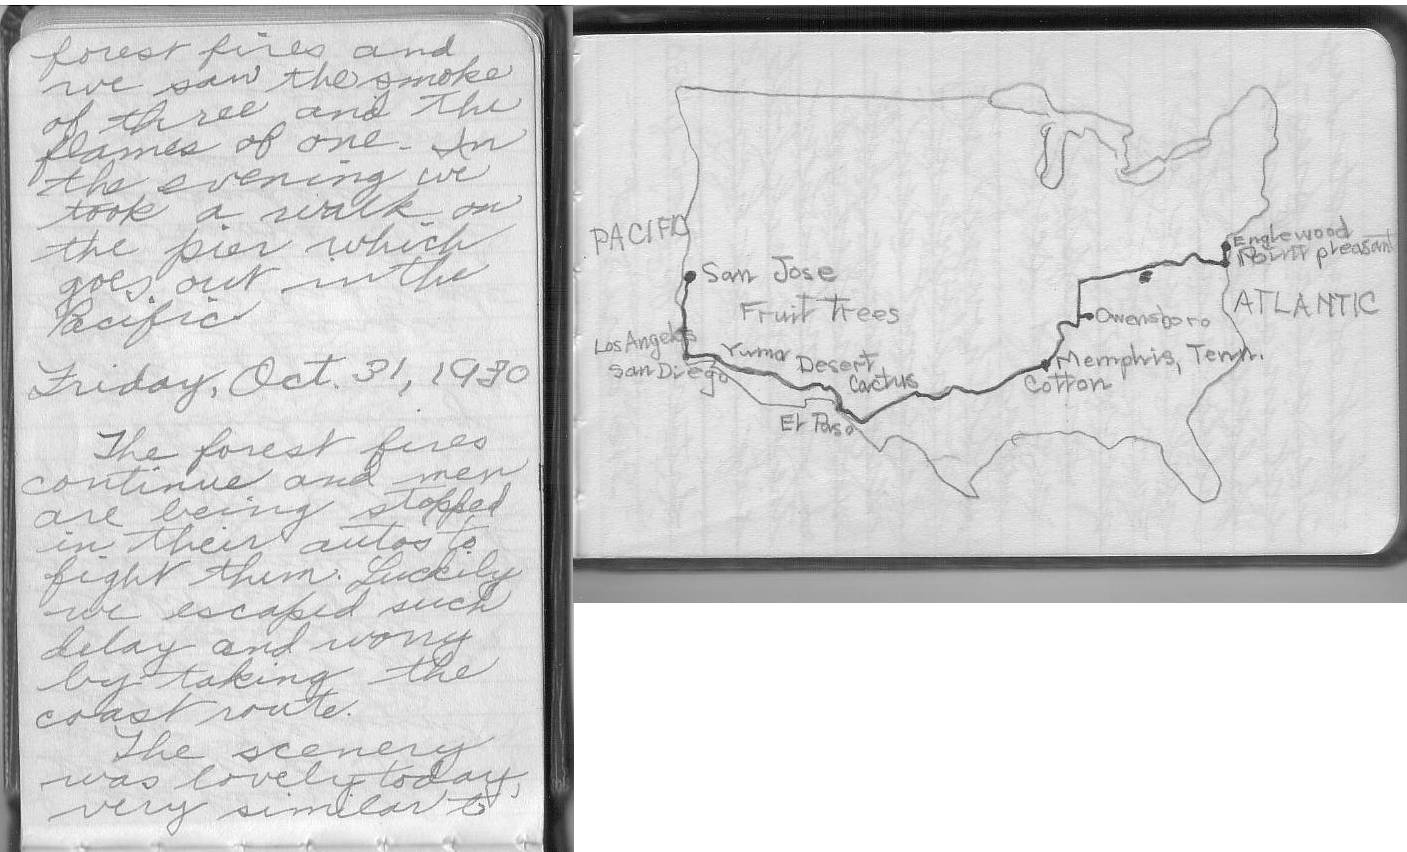 forest fires and
we saw the smoke
of three and the
flames of one. In
the evening we
took a walk on
the pier which
goes out in the
Pacific.
Friday, Oct. 31, 1930
The forest fires
continue and men
are being stopped
in their autos to
fight them. Luckily
we escaped such
delay and worry
by taking the
coast route.
The scenery
was lovely today,
very similar to
PACIFIC
San Jose
Fruit Trees
Los Angeles
San Diego
Yuma
Desert
Cactus
El Paso
Cotton
Memphis, Tenn.
Owensboro
Englewood
Point pleasant
ATLANTIC